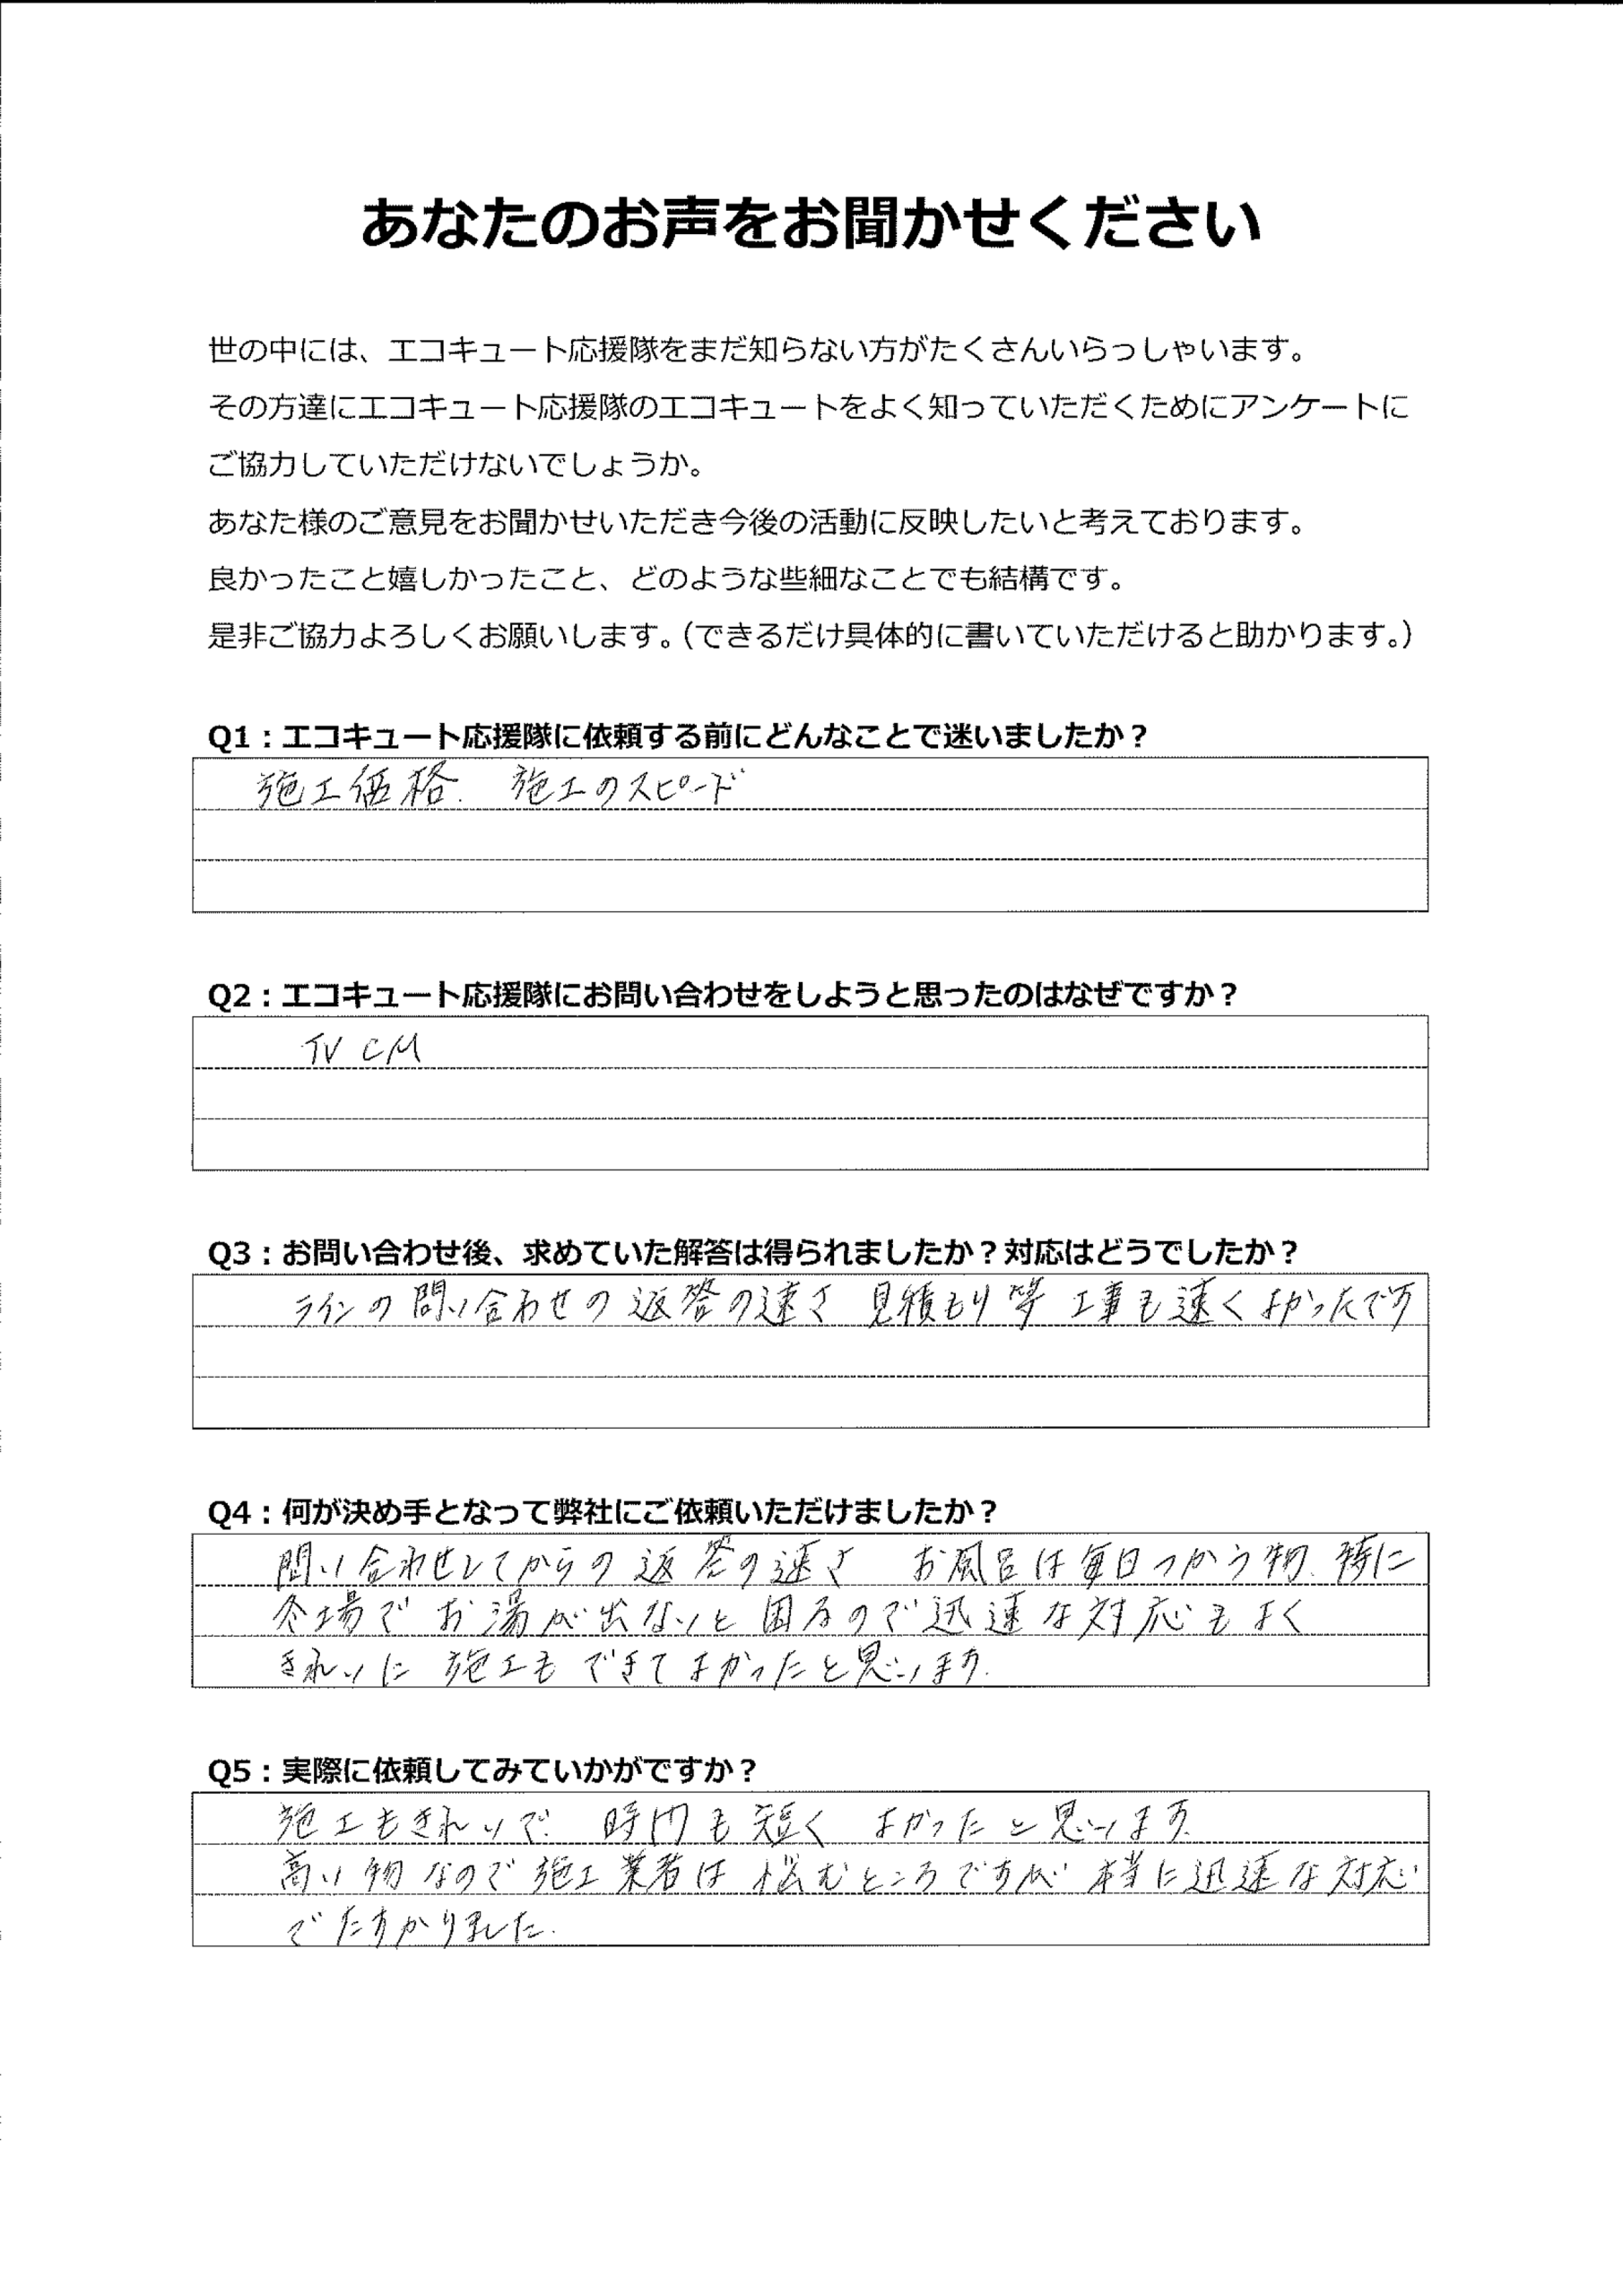 あなたのお声をお聞かせください
世の中には、エコキュート応援隊をまだ知らない方がたくさんいらっしゃいます。
その方達にエコキュート応援隊のエコキュートをよく知っていただくためにアンケートに
ご協力していただけないでしょうか。
あなた様のご意見をお聞かせいただき今後の活動に反映したいと考えております。
良かったこと嬉しかったこと、どのような些細なことでも結構です。
是非ご協力よろしくお願いします。(できるだけ具体的に書いていただけると助かります。)
Q1：エコキュート応援隊に依頼する前にどんなことで迷いましたか？
施工価格. 施工のスピード
Q2：エコキュート応援隊にお問い合わせをしようと思ったのはなぜですか？
TV CM
Q3：お問い合わせ後、求めていた解答は得られましたか？対応はどうでしたか？
ラインの問い合わせの返答の速さ 見積もり等 工事も速くよかったです
Q4：何が決め手となって弊社にご依頼いただけましたか？
問い合わせしてからの返答の速さ お風呂は毎日つかう物. 特に
冬場でお湯が出ないと困るので迅速な対応もよく
きれいに 施工もできてよかったと思います.
Q5：実際に依頼してみていかがですか？
施工もきれいで. 時間も短く よかったと思います.
高い物なので施工業者は悩むところですが 本当に迅速な対応
でたすかりました.